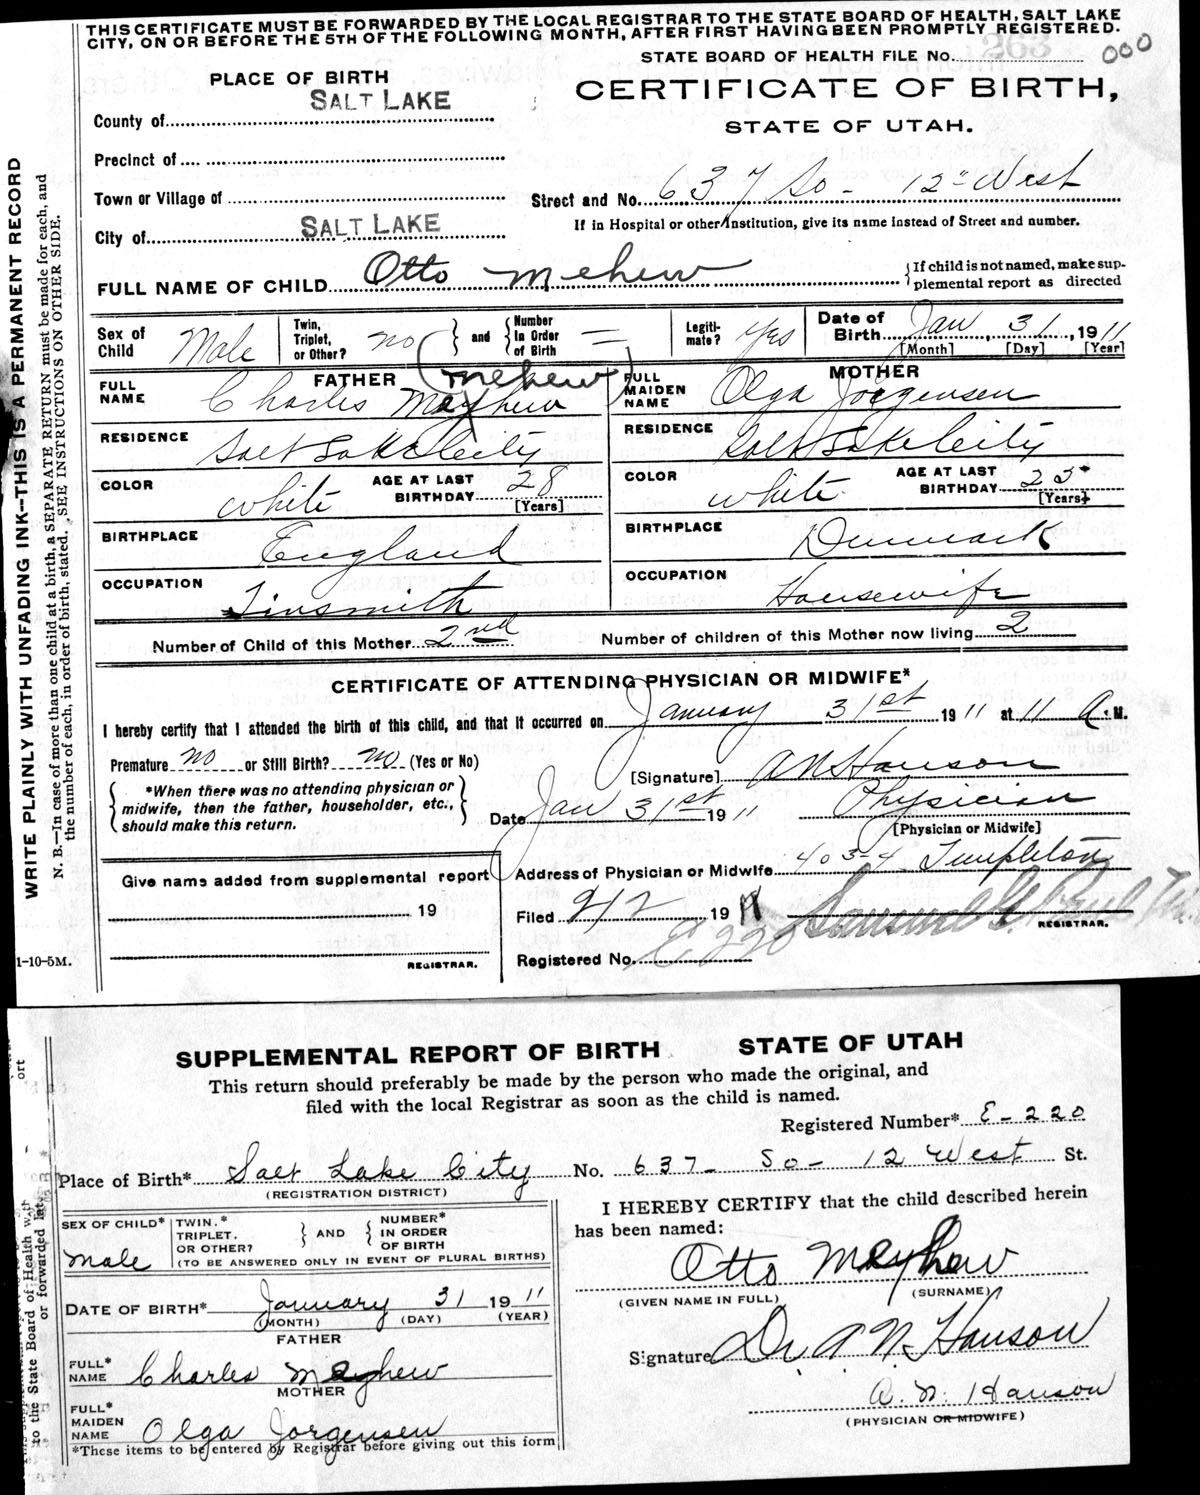 THIS CERTIFICATE MUST BE FORWARDED BY THE LOCAL REGISTRAR TO THE STATE BOARD OF HEALTH, SALT LAKE
CITY, ON OR BEFORE THE 5TH OF THE FOLLOWING MONTH, AFTER FIRST HAVING BEEN PROMPTLY REGISTERED.
STATE BOARD OF HEALTH FILE No. 263 000
PLACE OF BIRTH
CERTIFICATE OF BIRTH,
STATE OF UTAH.
County of SALT LAKE
Precinct of
Town or Village of
Street and No. 637 So - 12" West
City of SALT LAKE
If in Hospital or other Institution, give its name instead of Street and number.
FULL NAME OF CHILD Otto Mehew
If child is not named, make sup-
plemental report as directed
Sex of Child Male
Twin, Triplet, or Other? no
and Number In Order of Birth —
Legiti- mate? Yes
Date of Birth Jan 31, 1911
[Month] [Day] [Year]
FATHER
MOTHER
(Mehew)
FULL NAME Charles Mayhew
FULL MAIDEN NAME Olga Jorgensen
RESIDENCE Salt Lake City
RESIDENCE Salt Lake City
COLOR white AGE AT LAST BIRTHDAY 28 [Years]
COLOR white AGE AT LAST BIRTHDAY 23 [Years]
BIRTHPLACE England
BIRTHPLACE Denmark
OCCUPATION Tinsmith
OCCUPATION Housewife
Number of Child of this Mother 2nd
Number of children of this Mother now living 2
CERTIFICATE OF ATTENDING PHYSICIAN OR MIDWIFE*
I hereby certify that I attended the birth of this child, and that it occurred on January 31st 1911 at 11 A. M.
Premature no or Still Birth? no (Yes or No)
*When there was no attending physician or
midwife, then the father, householder, etc.,
should make this return.
[Signature] A N Hanson
Date Jan 31st 1911
Physician
[Physician or Midwife]
Give name added from supplemental report
19
REGISTRAR.
Address of Physician or Midwife 403-4 Templeton
Filed 2/2 1911 Samuel G. Paul
REGISTRAR.
Registered No. E 220
1-10-5M.
WRITE PLAINLY WITH UNFADING INK--THIS IS A PERMANENT RECORD
N. B.--In case of more than one child at a birth, a SEPARATE RETURN must be made for each, and
the number of each, in order of birth, stated. SEE INSTRUCTIONS ON OTHER SIDE.
SUPPLEMENTAL REPORT OF BIRTH STATE OF UTAH
This return should preferably be made by the person who made the original, and
filed with the local Registrar as soon as the child is named.
Registered Number* E-220
Place of Birth* Salt Lake City No. 637- So- 12 West St.
(REGISTRATION DISTRICT)
SEX OF CHILD* Male
TWIN,* TRIPLET, OR OTHER?
AND NUMBER* IN ORDER OF BIRTH
(TO BE ANSWERED ONLY IN EVENT OF PLURAL BIRTHS)
DATE OF BIRTH* January 31 1911
(MONTH) (DAY) (YEAR)
FATHER
FULL* NAME Charles Mayhew
MOTHER
FULL* MAIDEN NAME Olga Jorgensen
*These items to be entered by Registrar before giving out this form
I HEREBY CERTIFY that the child described herein
has been named:
Otto Mayhew
(GIVEN NAME IN FULL) (SURNAME)
Signature Dr A. N. Hanson
A. N. Hanson
(PHYSICIAN OR MIDWIFE)
to the State Board of Health
or forwarded lat
ort